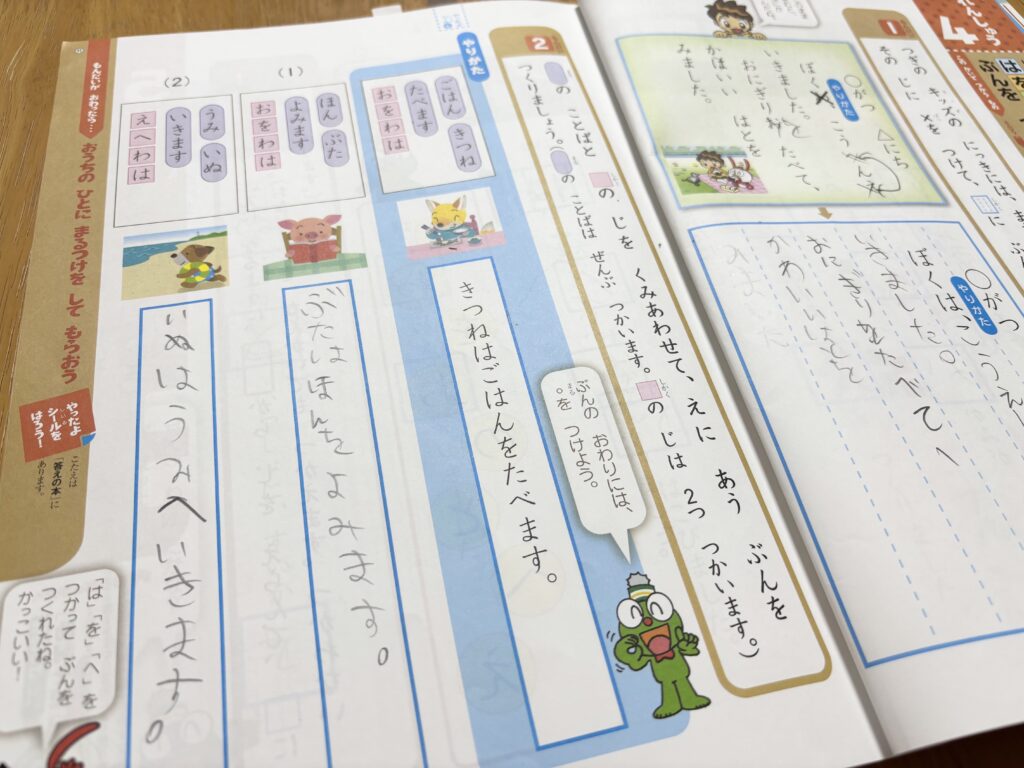 れんしゅう
4
は を
ぶんを
1
つぎの キッズの にっきには、ま
その じに ×を つけて、 に
◯がつ △にち
やりかた
いきました。
おにぎり たべて、
かほいい はとを
みました。
◯がつ
やりかた
ぼくは、こうえん
いきました。
おにぎりをたべて
2
の ことばと の、じを くみあわせて、えに あう ぶんを
つくりましょう。( の ことばは ぜんぶ つかいます。 の じは 2つ つかいます。)
ぶんの おわりには、
まる
。を つけよう。
やりかた
ごはん きつね
たべます
おをわは
きつねはごはんをたべます。
(1)
ほん ぶた
よみます
おをわは
ぶたはほんをよみます。
(2)
うみ いぬ
いきます
えへわは
いぬはうみへいきます。
もんだいが おわったら…
おうちの ひとに まるつけを して もらおう
やったよ
シールを
はろう!
こたえは
「答えの本」に
あります。
「は」「を」「へ」を
つかって ぶんを
つくれたね。
かっこいい!